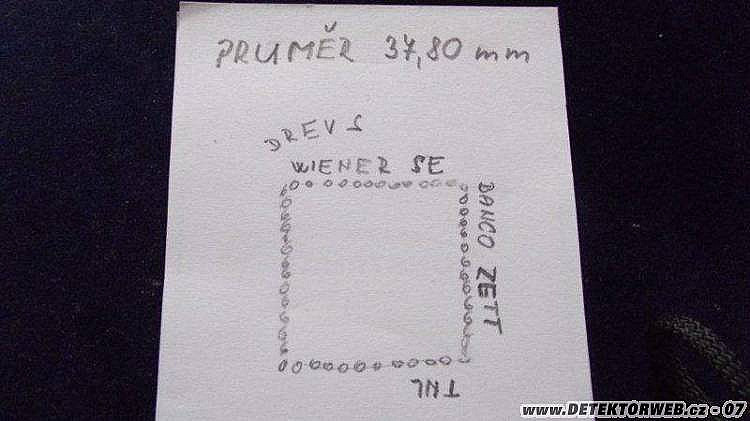 PRUMĚR 37,80 mm
DREVS
WIENER SE
BANCO ZETT
TNL
www.DETEKTORWEB.cz - 07